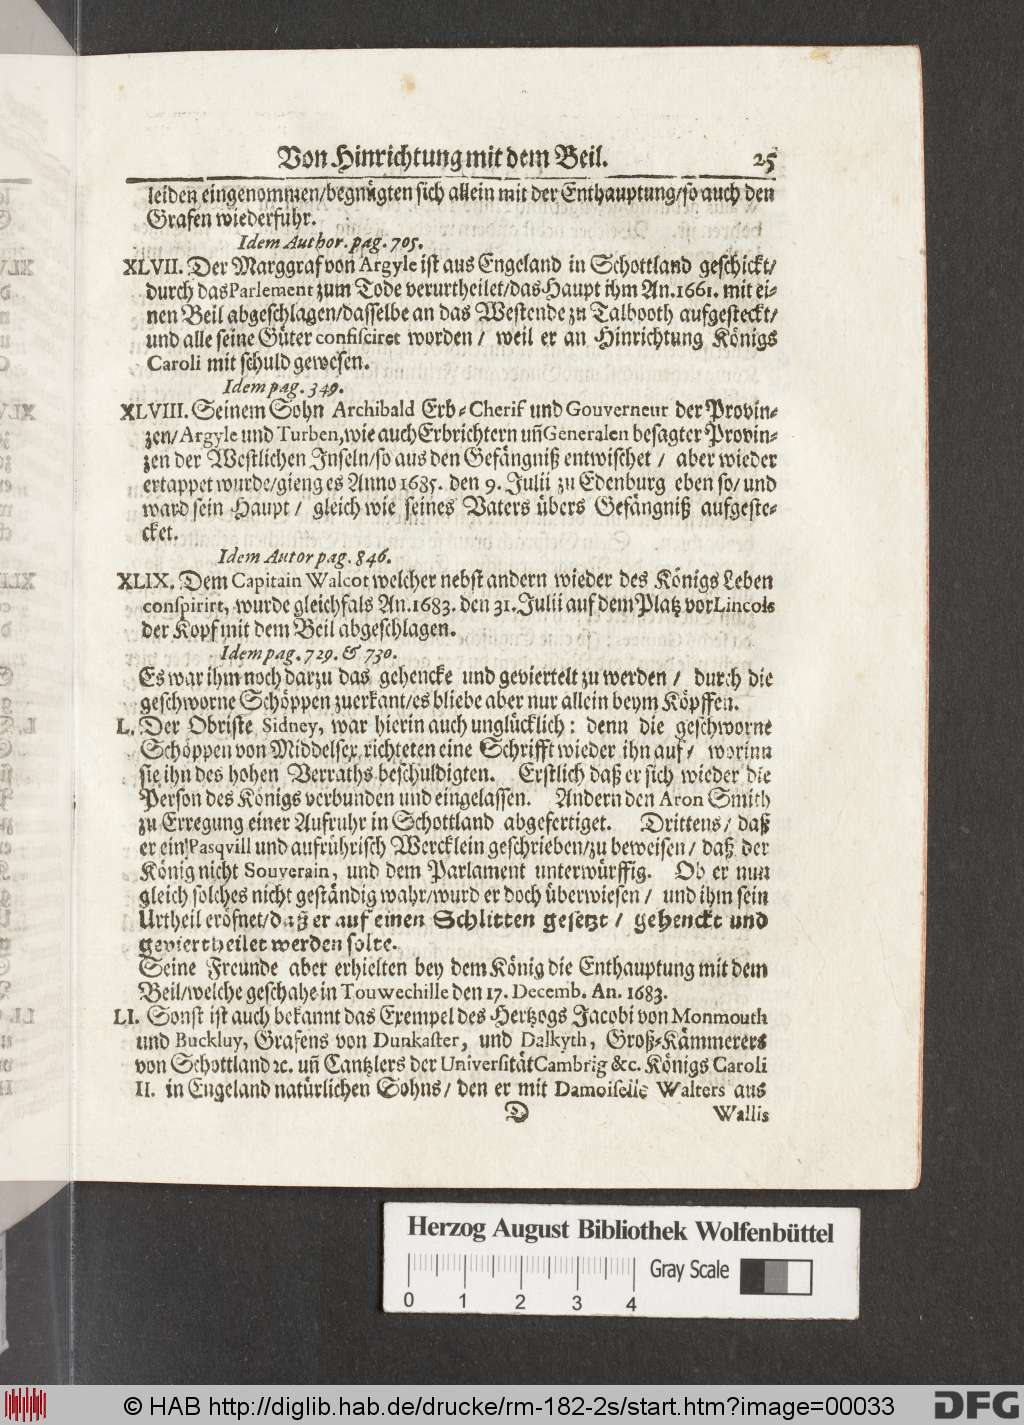 Von Hinrichtung mit dem Beil. 25
leiden eingenommen/begnügten sich allein mit der Enthauptung/so auch den
Grafen wiederfuhr.
Idem Author. pag. 705.
XLVII. Der Marggraf von Argyle ist aus Engeland in Schottland geschickt/
durch das Parlement zum Tode verurtheilet/das Haupt ihm An. 1661. mit ei-
nen Beil abgeschlagen/dasselbe an das Westende zu Talbooth aufgesteckt/
und alle seine Güter confisciret worden / weil er an Hinrichtung Königs
Caroli mit schuld gewesen.
Idem pag. 349.
XLVIII. Seinem Sohn Archibald Erb-Cherif und Gouverneur der Provin-
zen/Argyle und Turben, wie auch Erbrichtern uñ Generalen besagter Provin-
zen der Westlichen Inseln/so aus den Gefängniß entwischet / aber wieder
ertappet wurde/gieng es Anno 1685. den 9. Julii zu Edenburg eben so/ und
ward sein Haupt / gleich wie seines Vaters übers Gefängniß aufgeste-
cket.
Idem Autor pag. 846.
XLIX. Dem Capitain Walcot welcher nebst andern wieder des Königs Leben
conspirirt, wurde gleichfals An. 1683. den 31. Julii auf dem Platz vor Lincols
der Kopf mit dem Beil abgeschlagen.
Idem pag. 729. & 730.
Es war ihm noch darzu das gehencke und geviertelt zu werden / durch die
geschworne Schöppen zuerkant/es bliebe aber nur allein beym Köpffen.
L. Der Obriste Sidney, war hierin auch unglücklich: denn die geschworne
Schöppen von Middelsex richteten eine Schrifft wieder ihn auf/ worinn
sie ihn des hohen Verraths beschuldigten. Erstlich daß er sich wieder die
Person des Königs verbunden und eingelassen. Andern den Aron Smith
zu Erregung einer Aufruhr in Schottland abgefertiget. Drittens/ daß
er ein Pasqvill und aufrührisch Wercklein geschrieben/zu beweisen/ daß der
König nicht Souverain, und dem Parlament unterwürffig. Ob er nun
gleich solches nicht geständig wahr/wurd er doch überwiesen / und ihm sein
Urtheil eröfnet/daß er auf einen Schlitten gesetzt / gehenckt und
geviertheilet werden solte.
Seine Freunde aber erhielten bey dem König die Enthauptung mit dem
Beil/welche geschahe in Touwechille den 17. Decemb. An. 1683.
LI. Sonst ist auch bekannt das Exempel des Hertzogs Jacobi von Monmouth
und Buckluy, Grafens von Dunkaster, und Dalkyth, Groß-Kämmerers
von Schottland ꝛc. uñ Cantzlers der Universität Cambrig &c. Königs Caroli
II. in Engeland natürlichen Sohns/ den er mit Damoiselle Walters aus
D Wallis
Herzog August Bibliothek Wolfenbüttel
0 1 2 3 4 Gray Scale
© HAB http://diglib.hab.de/drucke/rm-182-2s/start.htm?image=00033 DFG